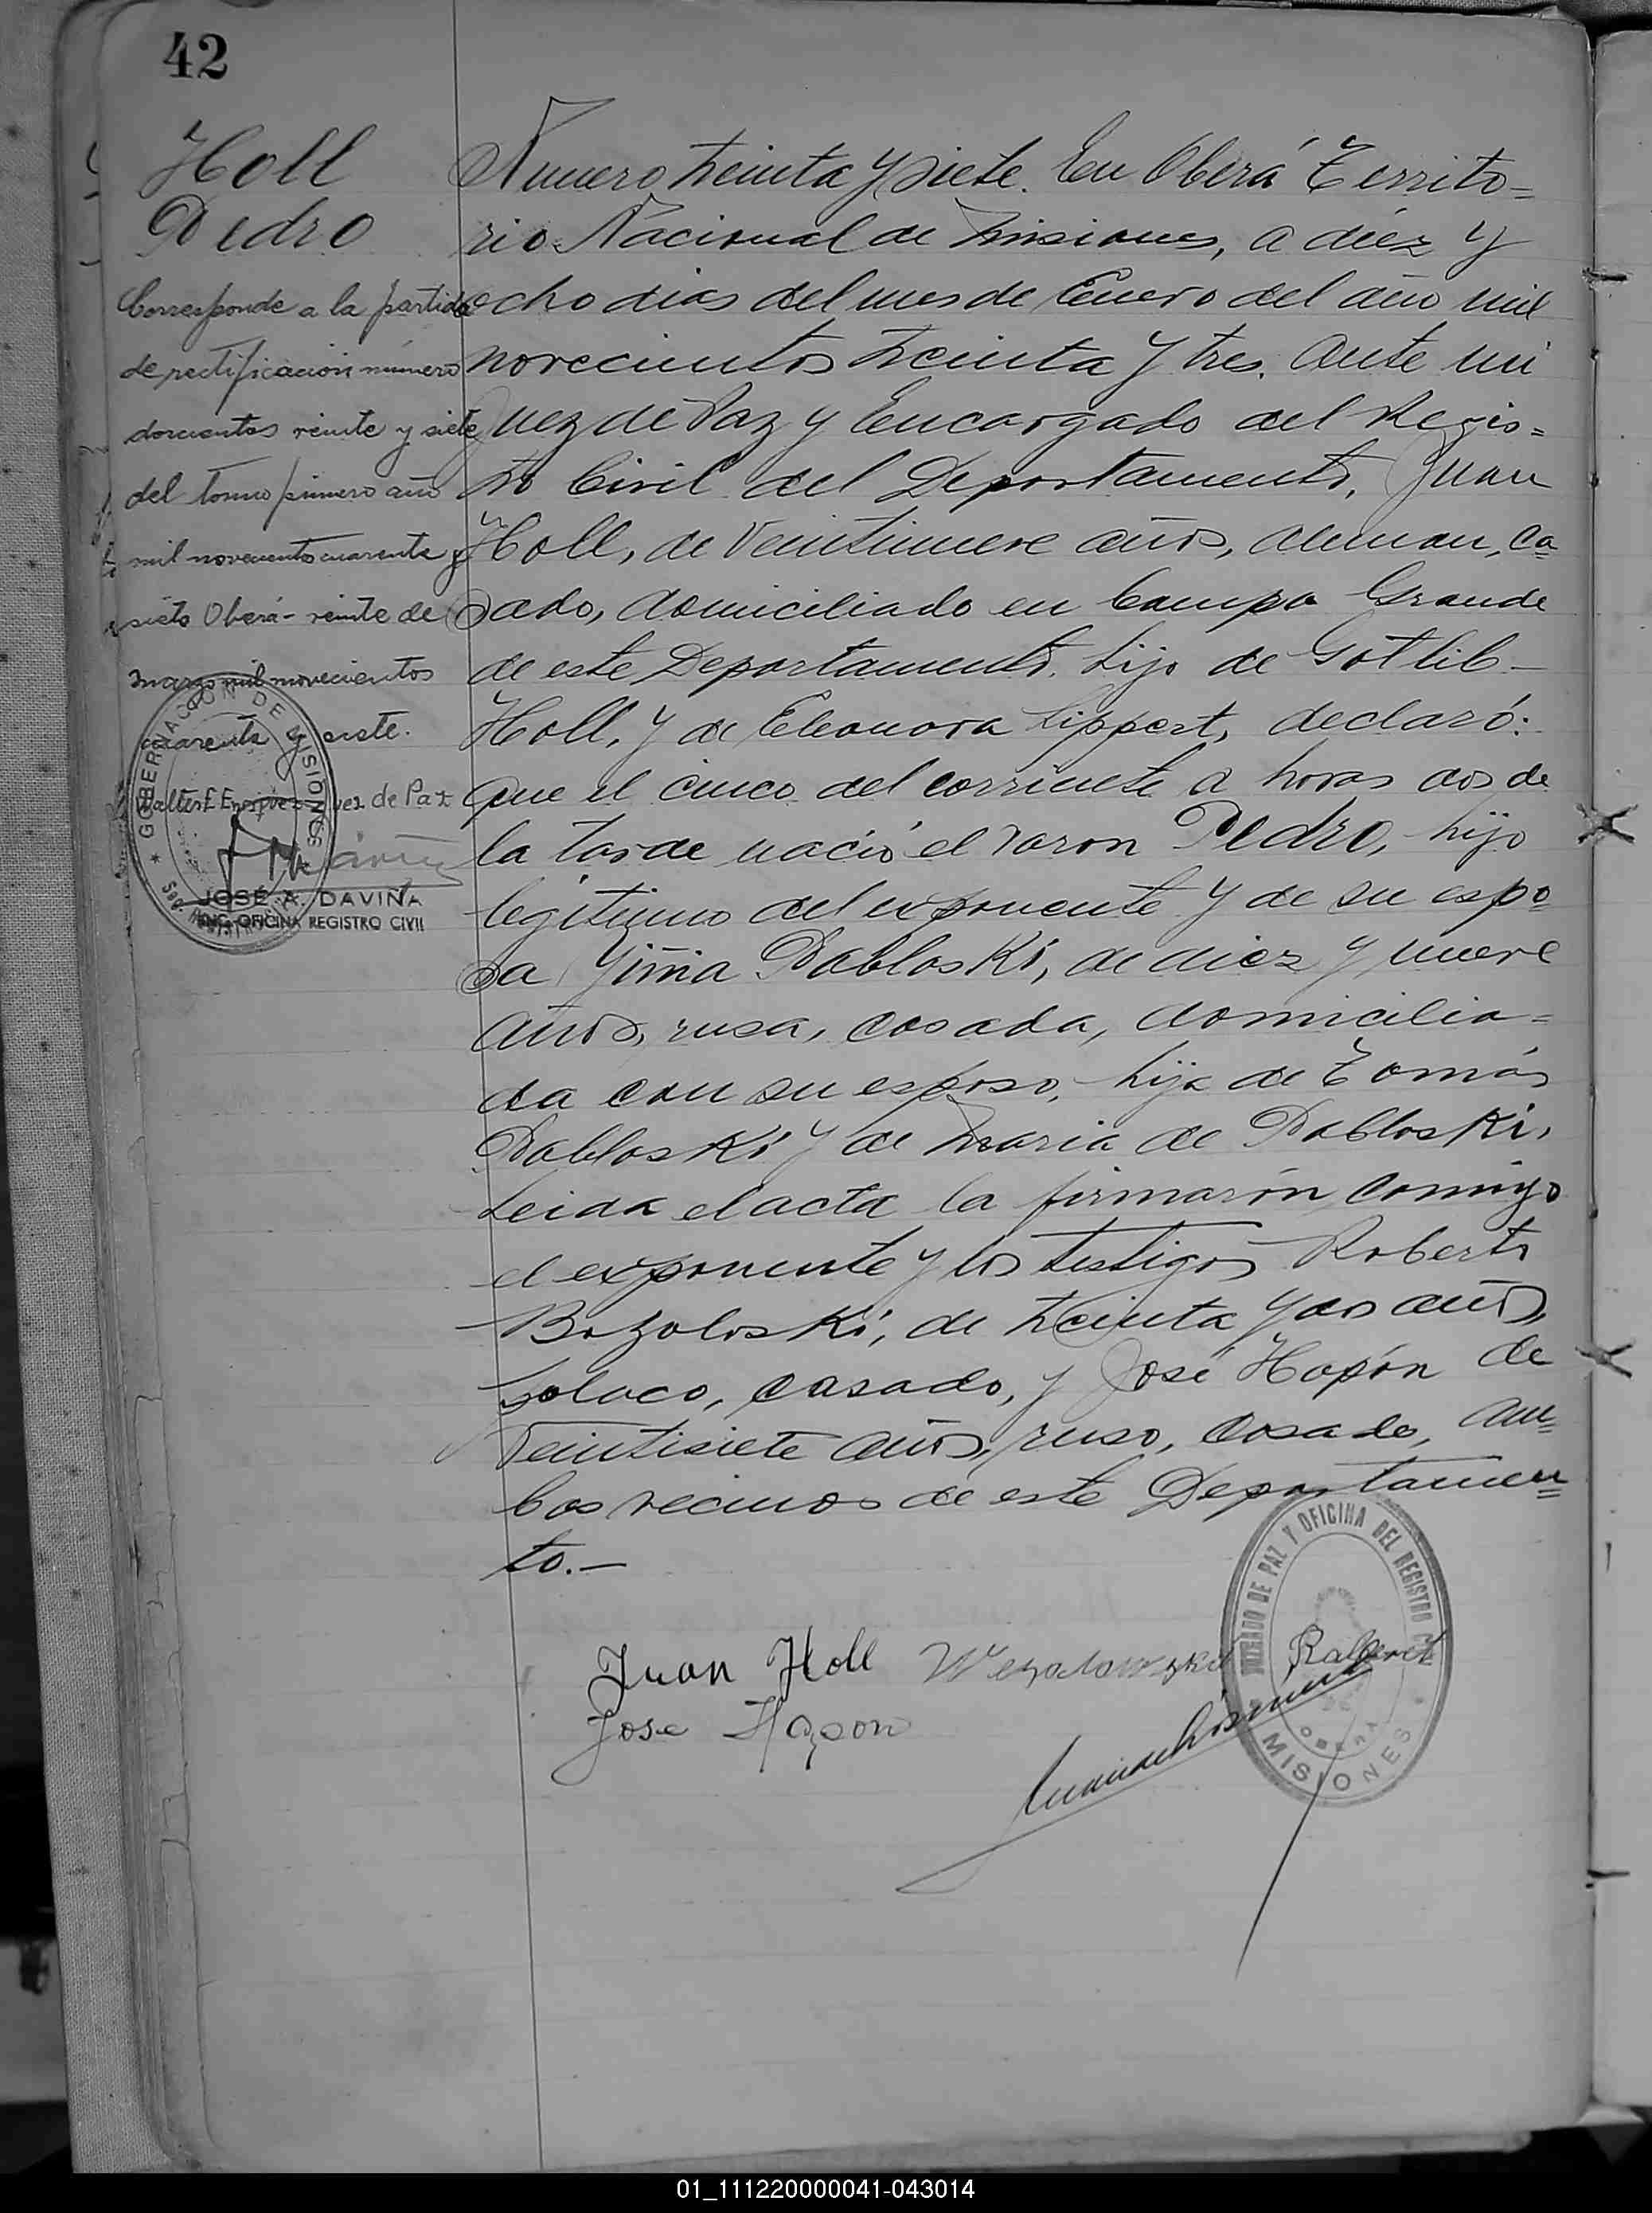 42
Holl
Pedro
Corresponde a la partida
de rectificación número
doscientos veinte y siete
del tomo primero año
mil novecientos cuarenta y
siete Oberá - veinte de
marzo mil novecientos
cuarenta y siete.
Juez de Paz
GOBERNACION DE MISIONES
JOSÉ A. DAVIÑA
ENC. OFICINA REGISTRO CIVIL
Numero treinta y siete. En Oberá Territo-
rio Nacional de Misiones, a diéz y
ocho dias del mes de Enero del año mil
novecientos treinta y tres. Ante mi
Juez de Paz y Encargado del Regis=
tro Civil del Departamento, Juan
Holl, de Veintinueve años, aleman, ca=
sado, domiciliado en Campo Grande
de este Departamento, hijo de Gotlib-
Holl, y de Eleonora Lippert, declaró:
que el cinco del corriente a horas dos de
la tarde nació el varon Pedro, hijo
legitimo del exponente y de su espo=
sa Yiña Pabloski, de diez y nueve
años, rusa, casada, domicilia=
da con su esposo, hija de Tomás
Pabloski y de Maria de Pabloski,
Leida el acta la firmarón comigo
el exponente y los testigos Roberto
Bozoloski, de treinta y dos años,
polaco, casado, y José Hapón de
Veintisiete años, ruso, casado, am=
bos vecinos de este Departamen=
to.-
Juan Holl
Jose Hapon
JUZGADO DE PAZ Y OFICINA DEL REGISTRO CIVIL
OBERA
MISIONES
01_111220000041-043014